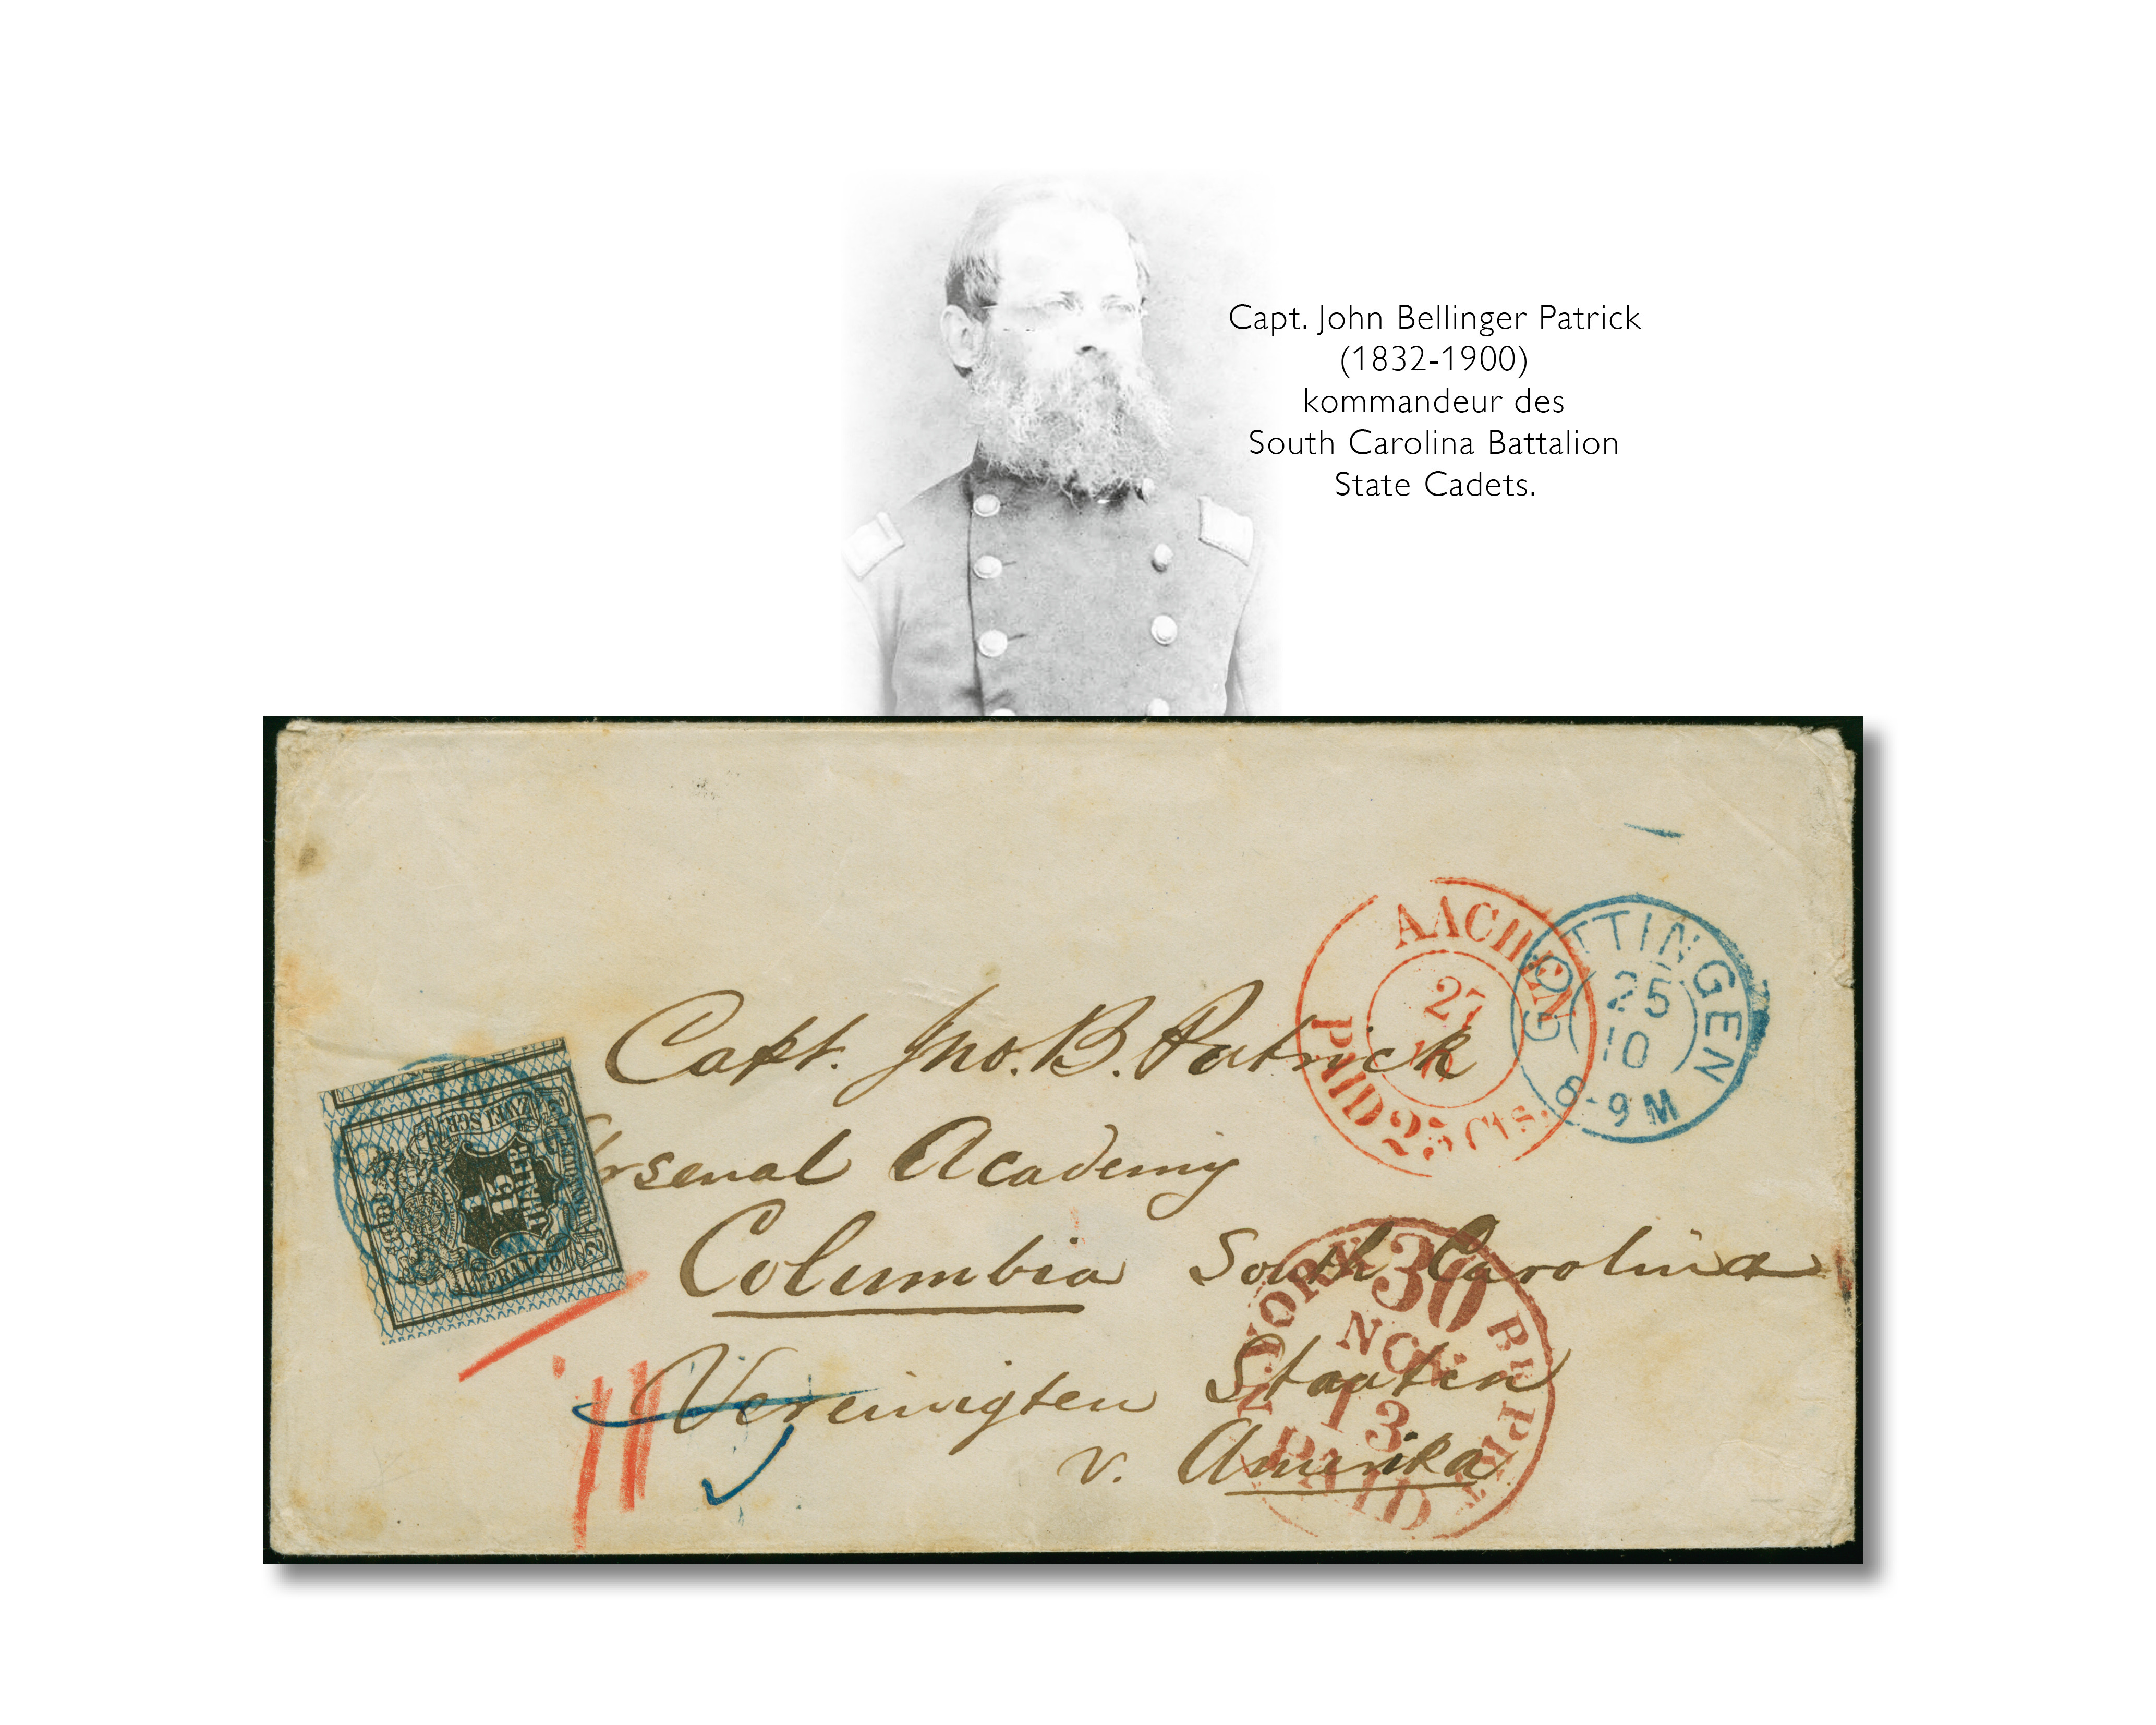 Capt. John Bellinger Patrick
(1832-1900)
kommandeur des
South Carolina Battalion
State Cadets.
AACHEN
27
PAID 25 Cts.
GÖTTINGEN
25
10
8-9 M
Capt. Jno. B. Patrick
Arsenal Academy
Columbia South Carolina
Vereinigten Staaten
v. Amerika
N. YORK 30 BR PKT
NOV
13
PAID
1
15
THALER
FRANCO